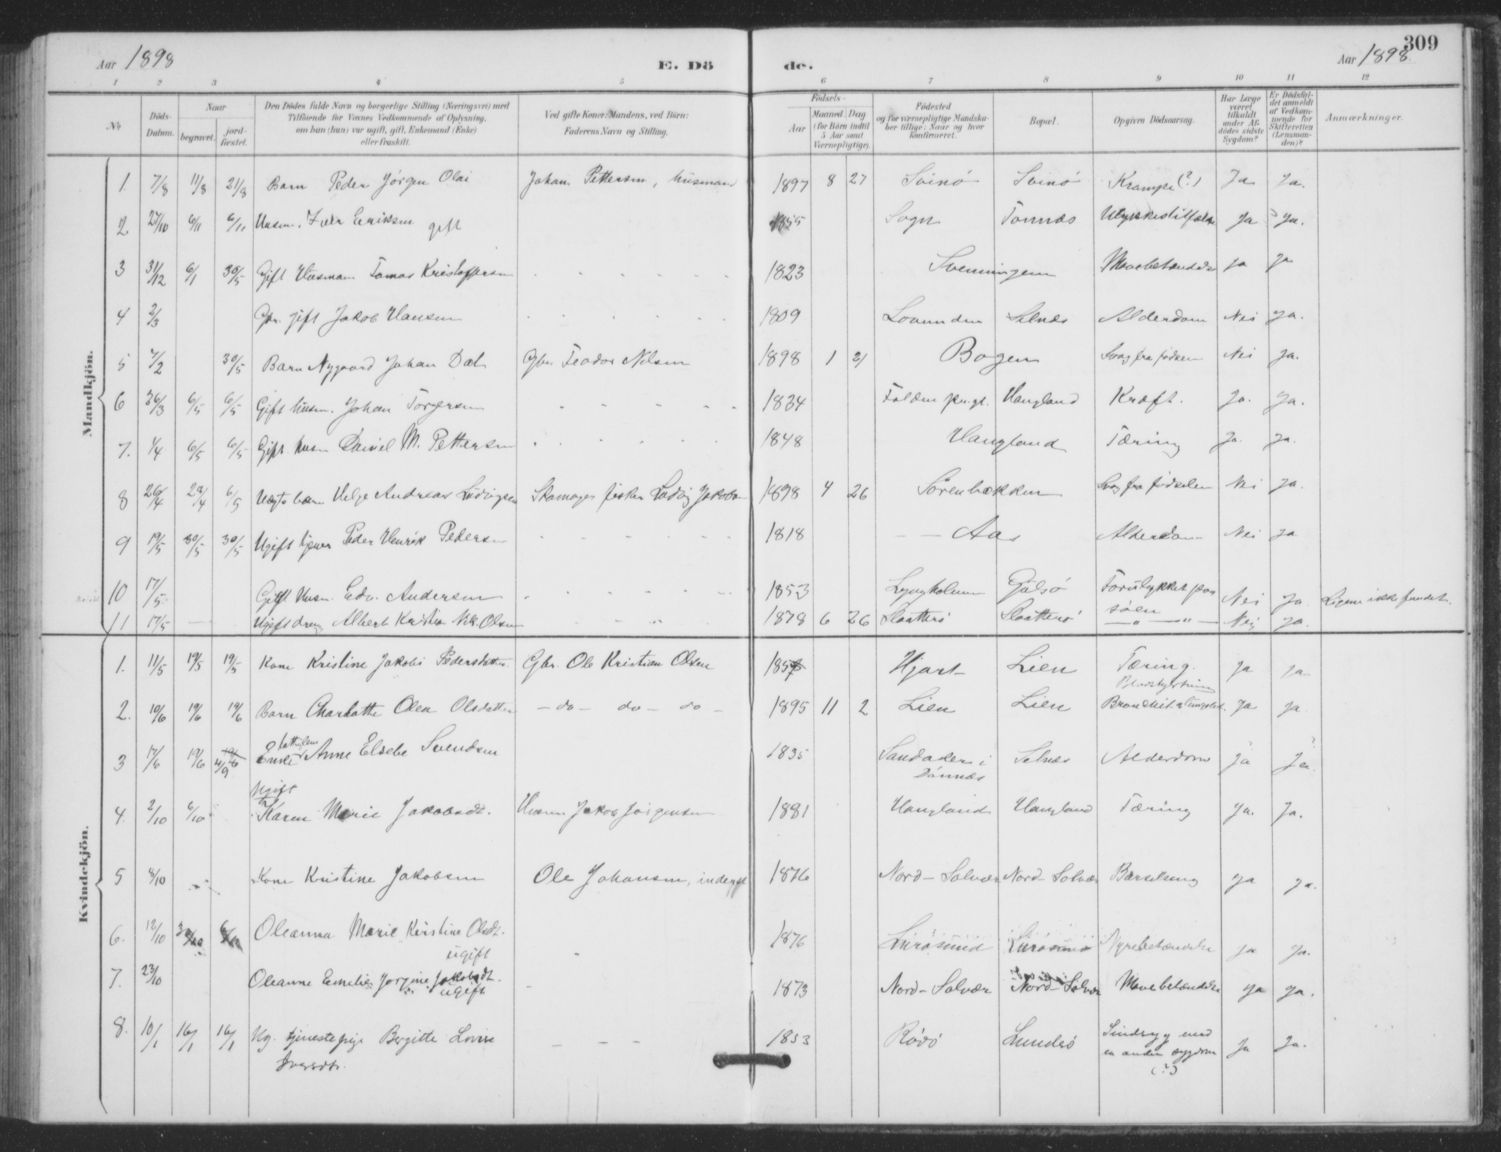 Aar 1898 E. Dö de. Aar 1898 309
1 2 3 4 5 6 7 8 9 10 11 12
No. Döds-Datum. Naar begravet. jord-fæstet. Den Dödes fulde Navn og borgerlige Stilling (Næringsvei) med Tilföiende for Voxnes Vedkommende af Oplysning, om han (hun) var ugift, gift, Enkemand (Enke) eller fraskilt. Ved gifte Koner: Mandens, ved Börn: Faderens Navn og Stilling. Födsels- Aar Maaned Dag (for Börn indtil 5 Aar samt Værnepligtige). Födested og for værnepligtige Mandskaber tillige: Naar og hvor konfirmeret. Bopæl. Opgiven Dödsaarsag. Har Læge været tilkaldt under Afdödes sidste Sygdom? Er Dödsfaldet anmeldt af Vedkommende for Skifteretten (Lensmanden)? Anmærkninger.
Mandkjön.
1 7/8 11/8 21/8 Barn Peder Jörgen Olai Johan Pettersen, husmand 1897 8 27 Svinö Svinö Krampe (?) Ja Ja.
2 27/10 6/11 6/11 Husm. Eriksen gift 1855 Sogn Tonnæs Ulykkestilfælde Ja Ja.
3 31/12 6/1 30/5 Gift Husmann Tomas Kristoffersen 1823 Svenningen Mavebetændelse Ja Ja
4 2/3 Gbr. gift Jakob Hansen 1809 Lovunden Selnæs Alderdom Nei Ja.
5 7/2 30/5 Barn Nygaard Johan Dal Gbr. Teodor Nilsen 1898 1 21 Bogen Svag fra födsen Nei Ja.
6 26/3 6/5 6/5 Gift husm. Johan Torgersen 1834 Folden prgt. Haugland Kræft. Ja. Ja.
7. 1/4 6/5 6/5 Gift husm Daniel M. Pettersen 1848 Haugland Tæring Ja. Ja.
8 26/4 29/4 6/5 Uægte barn Helge Andreas Ludvigsen fisker Ludvig Jakobsen 1898 4 26 Sörenbækken Svag fra födselen Nei Ja.
9 19/5 30/5 30/5 Ugift Peder Henrik Pedersen 1818 Aas Alderdom Nei Ja
10 17/5 Gift Husm. Edv. Andersen 1853 Lyngholmen Gjelsö Forulykket paa söen Nei Ja Ligene ikke fundet.
11 17/5 Ugift dreng Albert Kristian Olsen 1878 6 26 Slaatterö Slaatterö — " — " — Nei Ja.
Kvindekjön.
1. 11/5 19/5 19/5 Kone Kristine Jakobi Pedersdatter Gbr. Ole Kristian Olsen 1857 Hjart Lien Tæring. Ja Ja
2. 10/6 19/6 19/6 Barn Charlotte Olea Olsdatter — do — do — do — 1895 11 2 Lien Lien Ja Ja
3 17/6 19/6 19/6 4/9 Enke Anne Elsebe Svendsen 1835 Sandaker i Dönnæs Selnæs Alderdom Ja Ja
4. 2/10 6/10 Ugift Karen Marie Jakobsdt. Husm Jakob Jörgensen 1881 Haugland Haugland Tæring Ja. Ja.
5 8/10 Kone Kristine Jakobsen Ole Johansen, 1876 Nord-Solvær Nord-Solvær Barselseng Ja Ja.
6. 12/10 Oleanna Marie Kristine Olsdt. ugift 1876 Lurösund Lurösund Nyrebetændelse Ja Ja.
7. 23/10 Oleanne Emelie Jörgine Jakobsdt. ugift 1873 Nord-Solvær Nord-Solvær Mavebetændelse Ja Ja.
8. 10/1 16/1 16/1 Ug. tjenestepige Bergitte Lovise Iversdtr. 1853 Rödö Lundö Sindssyg med en anden sygdom (?) Ja Ja.